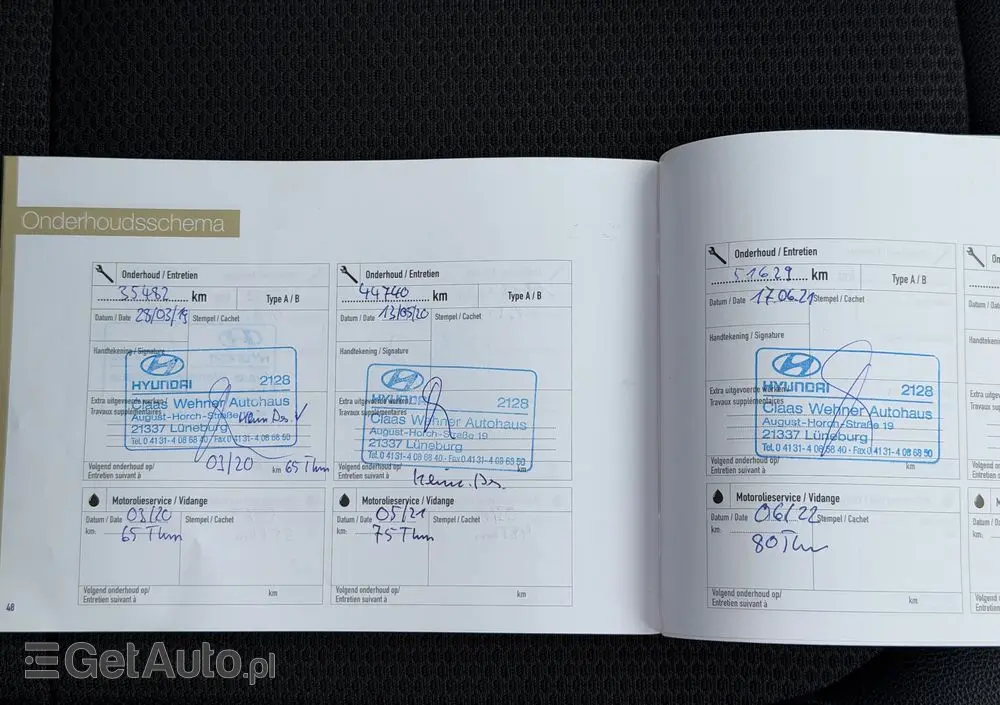 Onderhoudsschema
Onderhoud / Entretien
35482 km
Type A / B
Datum / Date 28/03/19 Stempel / Cachet
Handtekening / Signature
HYUNDAI 2128
Extra uitgevoerde werken /
Travaux supplémentaires
Claas Wehner Autohaus
August-Horch-Straße
21337 Lüneburg
Tel. 0 41 31-4 08 68 40 · Fax 0 41 31-4 08 68 50
Volgend onderhoud op/
Entretien suivant à
03/20 km 65 Tkm
Motorolieservice / Vidange
Datum / Date 03/20 Stempel / Cachet
km: 65 Tkm
Volgend onderhoud op/
Entretien suivant à
km
48
Onderhoud / Entretien
44740 km
Type A / B
Datum / Date 13/05/20 Stempel / Cachet
Handtekening / Signature
HYUNDAI 2128
Extra uitgevoerde werken /
Travaux supplémentaires
Claas Wehner Autohaus
August-Horch-Straße 19
21337 Lüneburg
Tel. 0 41 31-4 08 68 40 · Fax 0 41 31-4 08 68 50
Volgend onderhoud op/
Entretien suivant à
km
Motorolieservice / Vidange
Datum / Date 05/21 Stempel / Cachet
km: 75 Tkm
Volgend onderhoud op/
Entretien suivant à
km
Onderhoud / Entretien
51629 km
Type A / B
Datum / Date 17.06.21 Stempel / Cachet
Handtekening / Signature
HYUNDAI 2128
Extra uitgevoerde werken /
Travaux supplémentaires
Claas Wehner Autohaus
August-Horch-Straße 19
21337 Lüneburg
Tel. 0 41 31-4 08 68 40 · Fax 0 41 31-4 08 68 50
Volgend onderhoud op/
Entretien suivant à
km
Motorolieservice / Vidange
Datum / Date 06/22 Stempel / Cachet
km: 80 Tkm
Volgend onderhoud op/
Entretien suivant à
km
GetAuto.pl